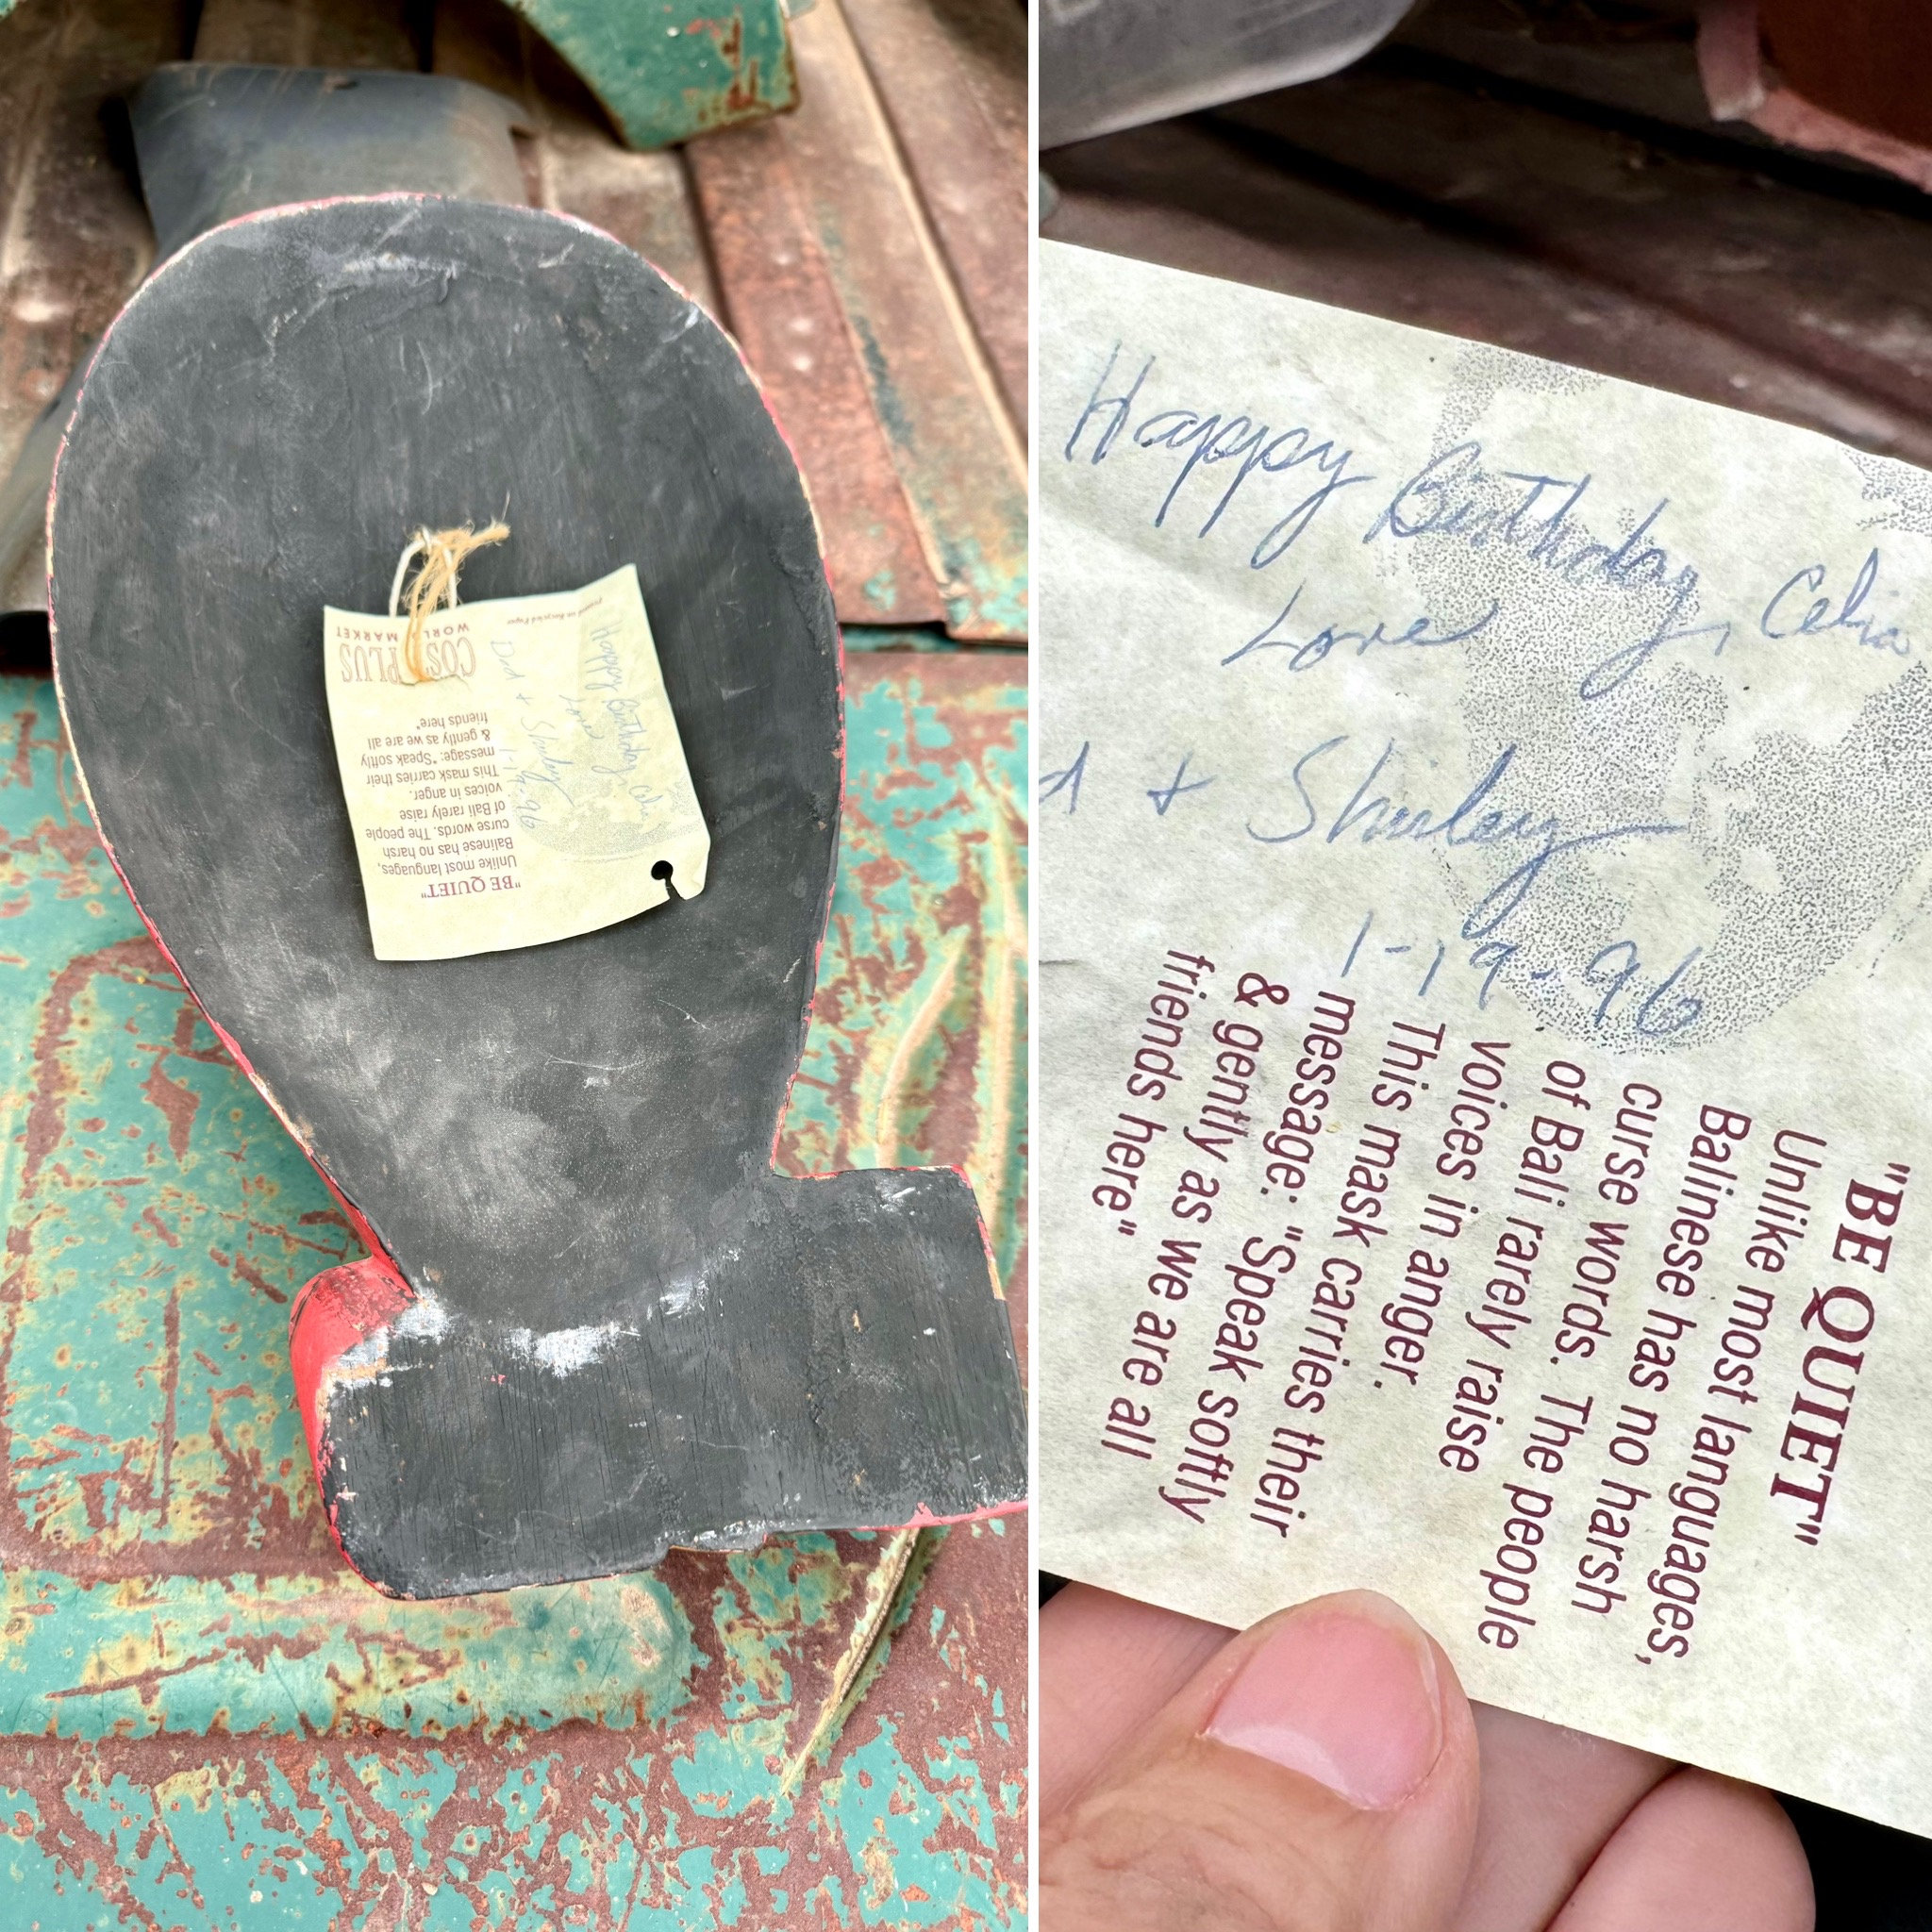 COST PLUS
WORLD MARKET
"BE QUIET"
Unlike most languages,
Balinese has no harsh
curse words. The people
of Bali rarely raise
voices in anger.
This mask carries their
message: "Speak softly
& gently as we are all
friends here"
Printed on Recycled Paper
Happy Birthday, Celia
Love
Dad + Shirley
1-19-96
Happy Birthday, Celia
Love
d + Shirley
1-19-96
"BE QUIET"
Unlike most languages,
Balinese has no harsh
curse words. The people
of Bali rarely raise
voices in anger.
This mask carries their
message: "Speak softly
& gently as we are all
friends here"